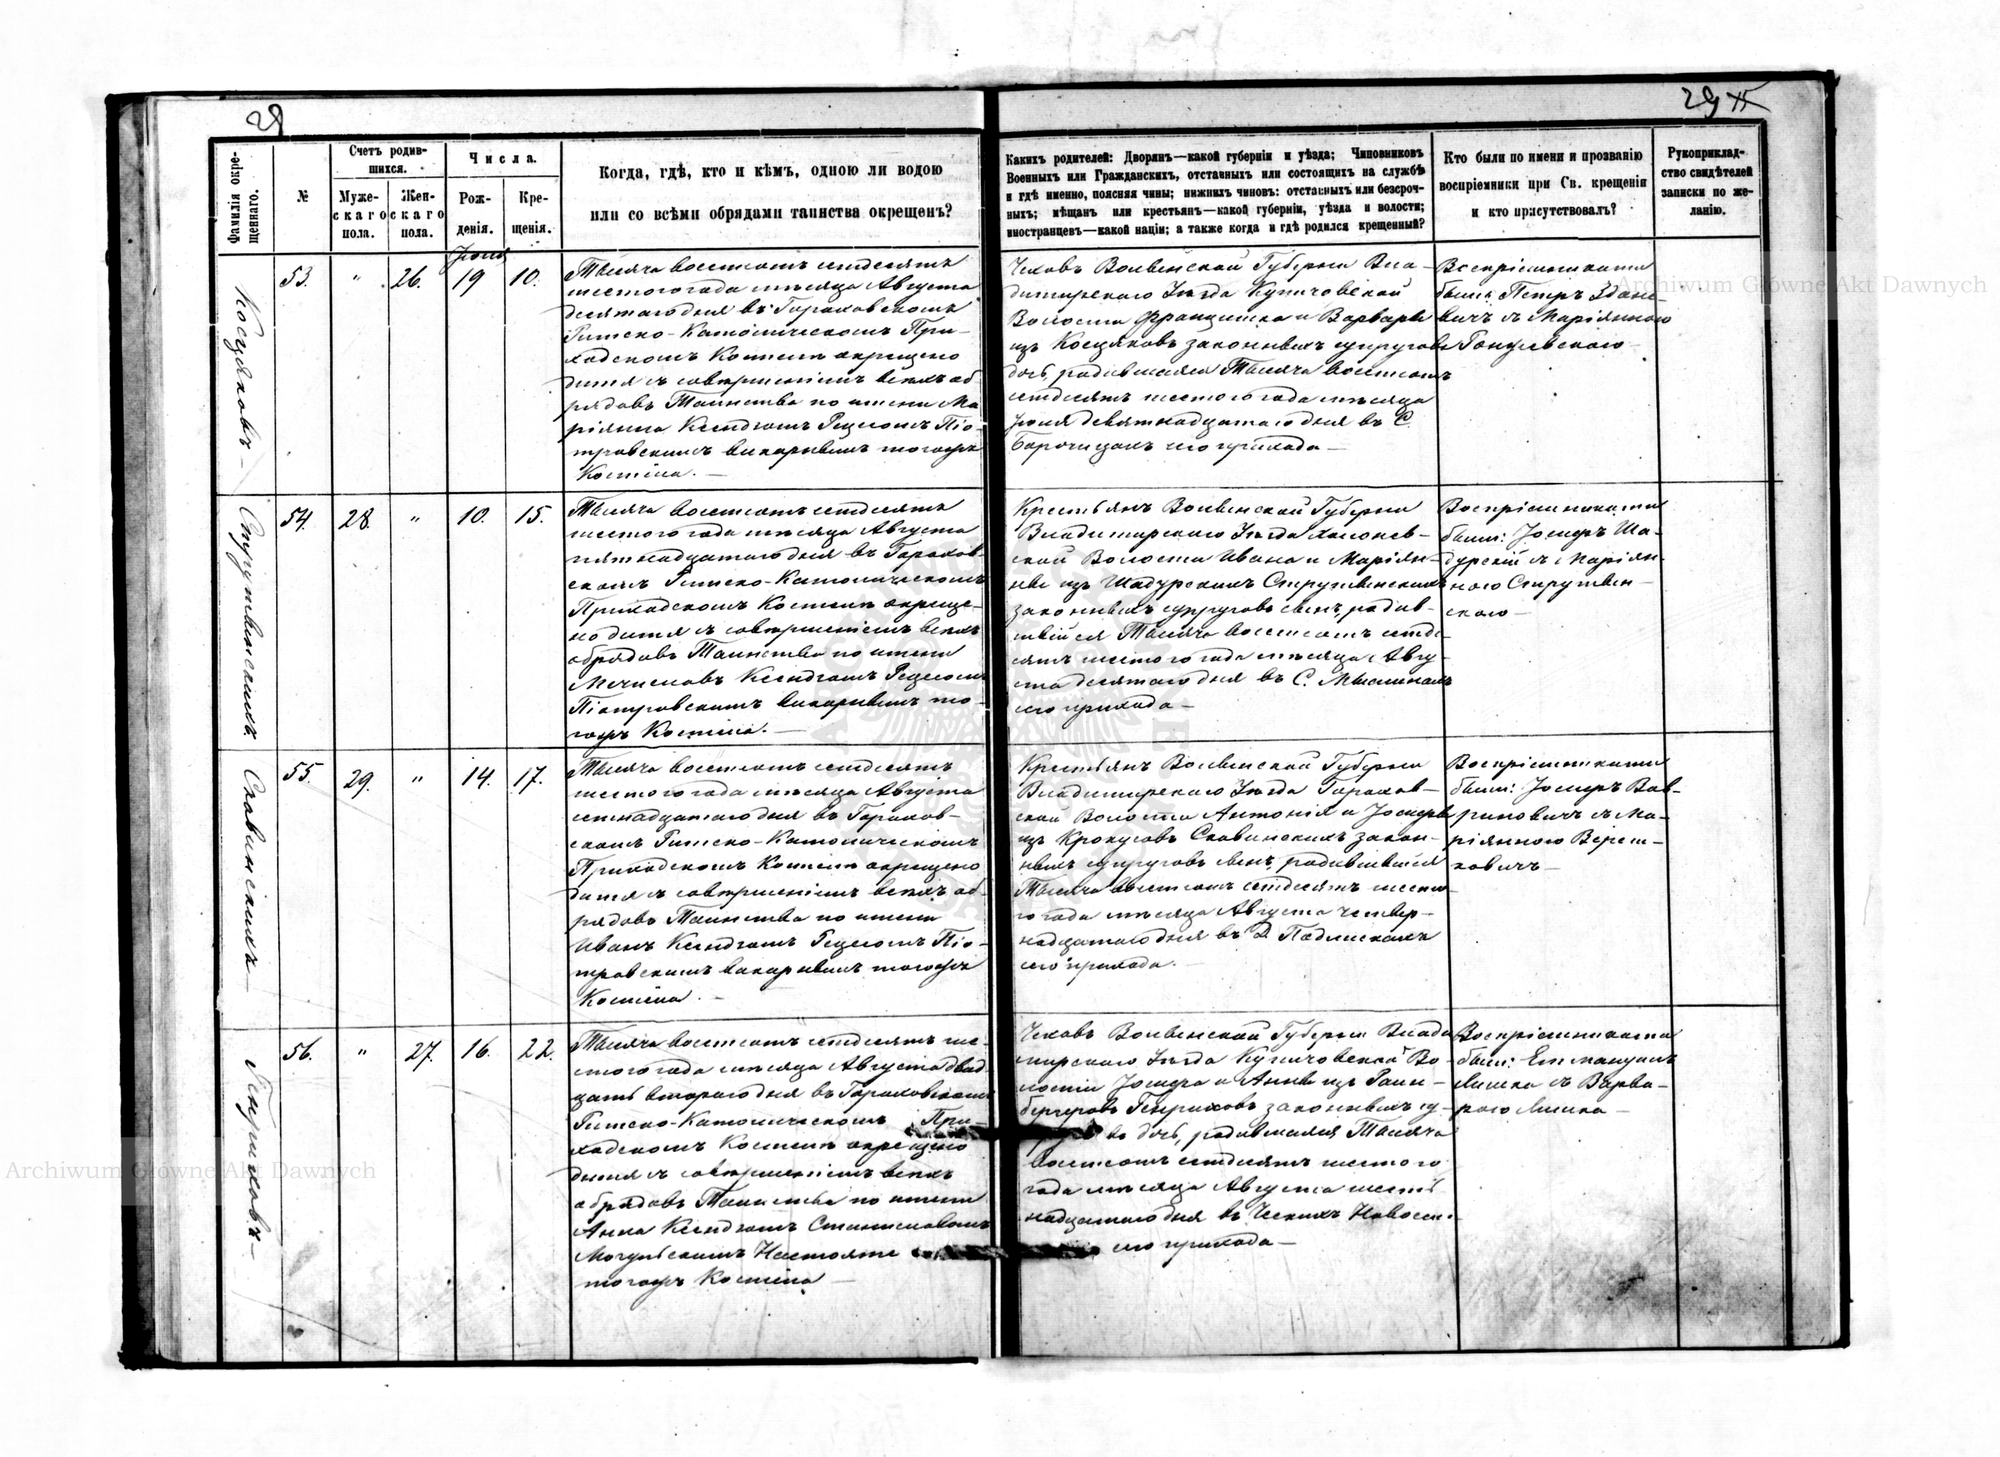 29
29
Фамилія окре-
щенаго.
№
Счетъ родив-
шихся.
Муже-
скаго
пола.
Жен-
скаго
пола.
Числа.
Рож-
денія.
Кре-
щенія.
Когда, гдѣ, кто и кѣмъ, одною ли водою
или со всѣми обрядами таинства окрещенъ?
Какихъ родителей: Дворянъ—какой губерніи и уѣзда; Чиновниковъ
Военныхъ или Гражданскихъ, отставныхъ или состоящихъ на службѣ
и гдѣ именно, поясняя чины; нижнихъ чиновъ: отставныхъ или безсроч-
ныхъ; мѣщанъ или крестьянъ—какой губерніи, уѣзда и волости;
иностранцевъ—какой націи; а также когда и гдѣ родился крещенный?
Кто были по имени и прозванію
воспріемники при Св. крещеніи
и кто присутствовалъ?
Рукоприклад-
ство свидѣтелей
записки по же-
ланію.
Косцяковъ —
53.
"
26.
Іюня
19
10.
Тысяча восемсотъ семдесятъ
шестого года мѣсяца Августа
десятаго дня въ Гороховскомъ
Римско-Католическомъ При-
ходскомъ Костелѣ окрещено
дитя съ совершеніемъ всѣхъ об-
рядовъ Таинства по имени Ма-
ріянна Ксендзомъ Піо-
тровскимъ викарнымъ тогожъ
Костела. —
Чеховъ Волынской Губерніи Вла-
димирскаго Уѣзда Купичовской
Волости Францишка и Варвары
изъ Косцяковъ законныхъ супруговъ
дочь, родившаяся Тысяча восемсотъ
семдесятъ шестого года мѣсяца
Іюня девятнадцатаго дня въ С.
сего прихода —
Воспріемниками
были: Петръ Здане-
вичъ съ Маріянною
54.
28.
"
10.
15.
Тысяча восемсотъ семдесятъ
шестого года мѣсяца Августа
пятнадцатаго дня въ Горохов-
скомъ Римско-Католическомъ
Приходскомъ Костелѣ окреще-
но дитя съ совершеніемъ всѣхъ
обрядовъ Таинства по имени
Мечиславъ Ксендзомъ
Піотровскимъ викарнымъ то-
гожъ Костела. —
Крестьянъ Волынской Губерніи
Владимирскаго Уѣзда Хоров-
ской Волости Ивана и Маріян-
ны изъ Шадурскихъ Струтвинскихъ
законныхъ супруговъ сынъ, родив-
шійся Тысяча восемсотъ семде-
сятъ шестого года мѣсяца Авгу-
ста десятаго дня въ С.
сего прихода —
Воспріемниками
были: Іосифъ Ша-
дурскій съ Маріян-
ною Струтвин-
скою —
55.
29.
"
14.
17.
Тысяча восемсотъ семдесятъ
шестого года мѣсяца Августа
семнадцатаго дня въ Горохов-
скомъ Римско-Католическомъ
Приходскомъ Костелѣ окрещено
дитя съ совершеніемъ всѣхъ об-
рядовъ Таинства по имени
Иванъ Ксендзомъ Піо-
тровскимъ викарнымъ тогожъ
Костела. —
Крестьянъ Волынской Губерніи
Владимирскаго Уѣзда Горохов-
ской Волости Антонія и Іосифы
изъ Крокусовъ Сковинскихъ закон-
ныхъ супруговъ сынъ, родившійся
Тысяча восемсотъ семдесятъ шесто-
го года мѣсяца Августа четыр-
надцатаго дня въ Д.
сего прихода. —
Воспріемниками
были: Іосифъ Вав-
риновичъ съ Ма-
ріянною Вереш-
ковичъ —
Генриховъ —
56.
"
27.
16.
22.
Тысяча восемсотъ семдесятъ ше-
стого года мѣсяца Августа двад-
цать второго дня въ Гороховскомъ
Римско-Католическомъ При-
ходскомъ Костелѣ окрещено
дитя съ совершеніемъ всѣхъ
обрядовъ Таинства по имени
Анна Ксендзомъ Станиславомъ
Могульскимъ Настояте
тогожъ Костела —
Чеховъ Волынской Губерніи Влади-
мирскаго Уѣзда Купичовской Во-
лости Іосифа и Анны изъ
Генриховъ законныхъ су-
въ дочь, родившаяся Тысяча
восемсотъ семдесятъ шестого
года мѣсяца Августа шест-
надцатаго дня въ Чешскихъ
сего прихода —
Воспріемниками
были: Еммануилъ
Лишка съ Варва-
рою Лишка —
Archiwum Główne Akt Dawnych
Archiwum Główne Akt Dawnych